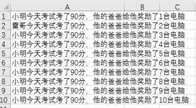 A B C
1 小明今天考试考了90分，他的爸爸给他奖励了1台电脑
2 雷哥今天考试考了90分，他的爸爸给他奖励了2台电脑
3 小明今天考试考了90分，他的爸爸给他奖励了3台电脑
4 小明今天考试考了90分，他的爸爸给他奖励了4台电脑
5 小明今天考试考了90分，他的爸爸给他奖励了5台电脑
6 小明今天考试考了90分，他的爸爸给他奖励了6台电脑
7 小明今天考试考了90分，他的爸爸给他奖励了7台电脑
8 小明今天考试考了90分，他的爸爸给他奖励了8台电脑
9 小明今天考试考了90分，他的爸爸给他奖励了9台电脑
10 小明今天考试考了90分，他的爸爸给他奖励了10台电脑